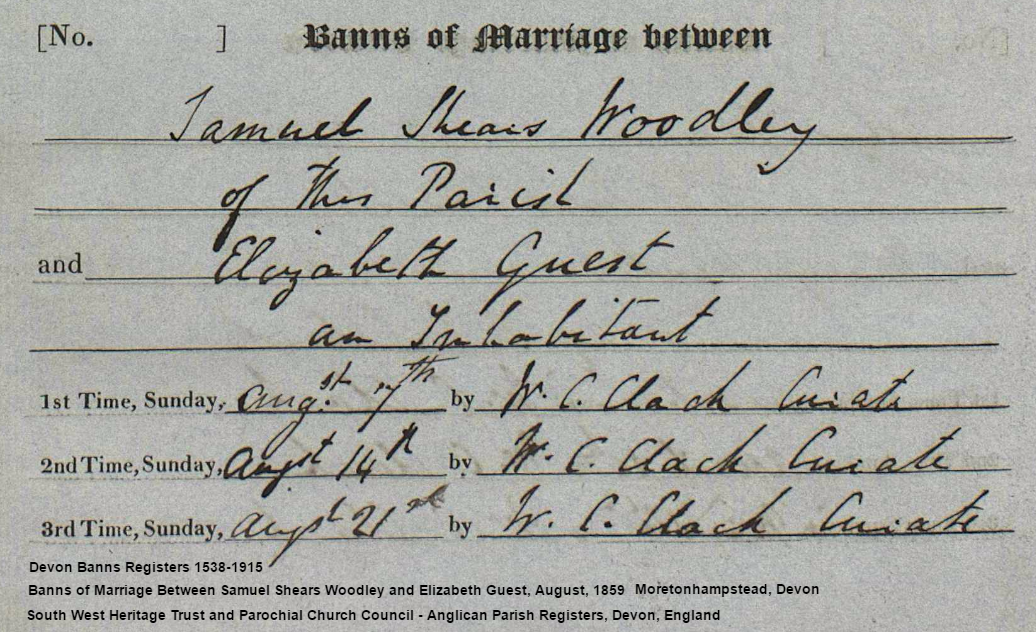 [No. ] Banns of Marriage between
Samuel Shears Woodley
of this Parish
and Elizabeth Guest
an Inhabitant
1st Time, Sunday, Augst 7th by W. C. Clack Curate
2nd Time, Sunday, Augst 14th by W. C. Clack Curate
3rd Time, Sunday, Augst 21st by W. C. Clack Curate
Devon Banns Registers 1538-1915
Banns of Marriage Between Samuel Shears Woodley and Elizabeth Guest, August, 1859 Moretonhampstead, Devon
South West Heritage Trust and Parochial Church Council - Anglican Parish Registers, Devon, England